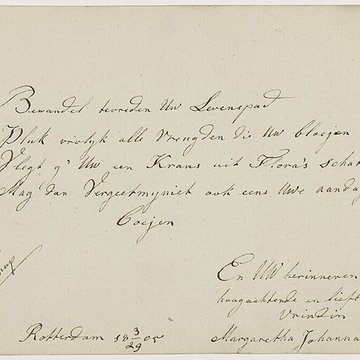 Bewandel tevreden Uw Levenspad
Pluk vrolyk alle Vreugden die Uw bloejen
Vlegt g' Uw een Krans uit Flora's schat
Mag dan Vergeetmyniet ook eens Uwe aanda
boejen
En UW herinneren
hoogachtende en lief
Vrindin
Rotterdam 18 3/29 05
Margaretha Johanna